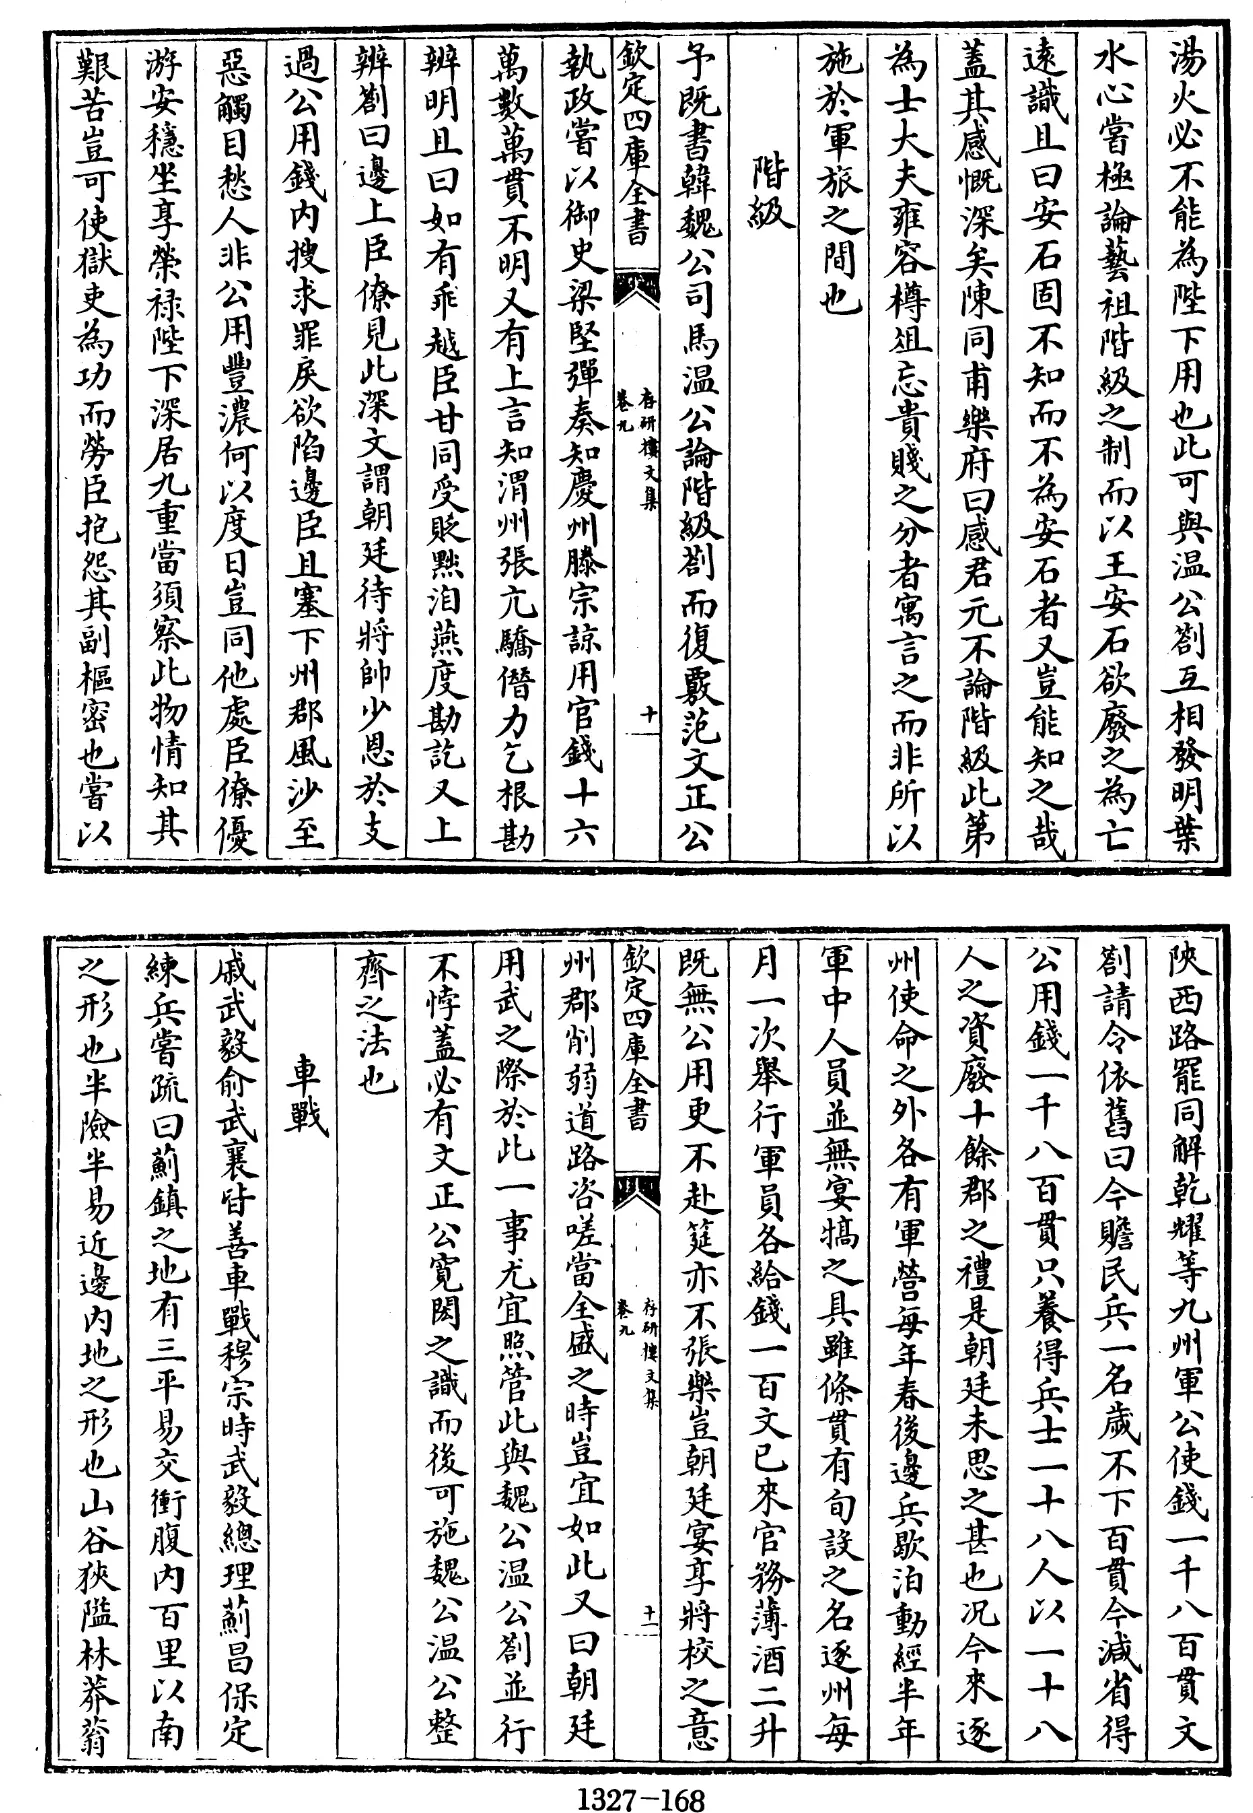 湯火必不能為陛下用也此可與温公劄互相發明葉
水心嘗極論藝祖階級之制而以王安石欲廢之為亡
遠識且曰安石固不知而不為安石者又豈能知之哉
蓋其感慨深矣陳同甫樂府曰感君元不論階級此第
為士大夫雍容樽俎忘貴賤之分者寓言之而非所以
施於軍旅之間也
階級
予既書韓魏公司馬温公論階級劄而復覈范文正公
欽定四庫全書
存研樓文集
卷九
十
執政嘗以御史梁堅彈奏知慶州滕宗諒用官錢十六
萬數萬貫不明又有上言知渭州張亢驕僭力乞根勘
辨明且曰如有乖越臣甘同受貶黜洎燕度勘訖又上
辨劄曰邊上臣僚見此深文謂朝廷待將帥少恩於支
過公用錢内搜求罪戾欲陷邊臣且塞下州郡風沙至
惡觸目愁人非公用豐濃何以度日豈同他處臣僚優
游安穩坐享榮禄陛下深居九重當須察此物情知其
艱苦豈可使獄吏為功而勞臣抱怨其副樞密也嘗以
陜西路罷同解乾耀等九州軍公使錢一千八百貫文
劄請令依舊曰今贍民兵一名歲不下百貫今減省得
公用錢一千八百貫只養得兵士一十八人以一十八
人之資廢十餘郡之禮是朝廷未思之甚也况今來逐
州使命之外各有軍營每年春後邊兵歇泊動經半年
軍中人員並無宴犒之具雖條貫有旬設之名逐州每
月一次舉行軍員各給錢一百文已來官務薄酒二升
既無公用更不赴筵亦不張樂豈朝廷宴享將校之意
欽定四庫全書
存研樓文集
卷九
十一
州郡削弱道路咨嗟當全盛之時豈宜如此又曰朝廷
用武之際於此一事尤宜照管此與魏公温公劄並行
不悖蓋必有文正公寛閎之識而後可施魏公温公整
齊之法也
車戰
戚武毅俞武襄皆善車戰穆宗時武毅總理薊昌保定
練兵嘗疏曰薊鎮之地有三平易交衝腹内百里以南
之形也半險半易近邊内地之形也山谷狹隘林莽蓊
1327-168